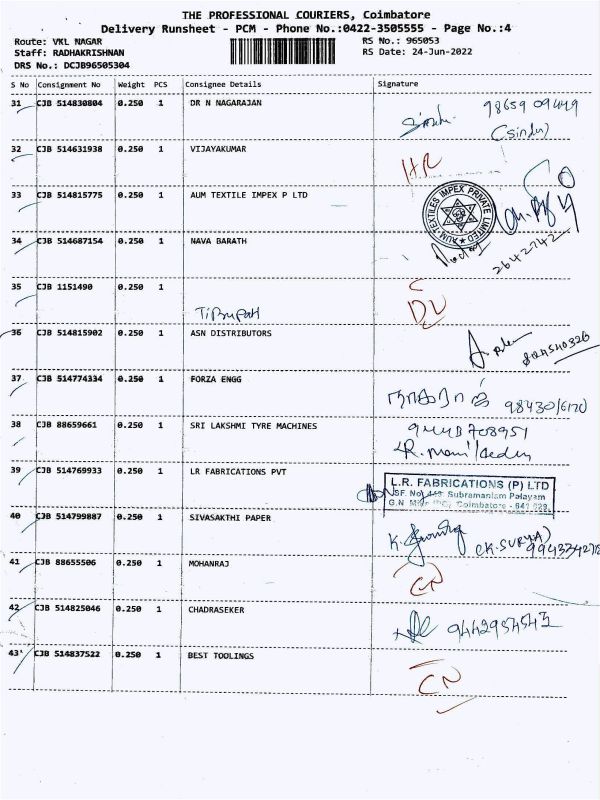 THE PROFESSIONAL COURIERS, Coimbatore
Delivery Runsheet - PCM - Phone No.:0422-3505555 - Page No.:4
Route: VKL NAGAR
RS No.: 965053
Staff: RADHAKRISHNAN
RS Date: 24-Jun-2022
DRS No.: DCJB96505304
S No Consignment No Weight PCS Consignee Details Signature
31 CJB 514830804 0.250 1 DR N NAGARAJAN
98659 09449
(Sindu)
32 CJB 514631938 0.250 1 VIJAYAKUMAR
33 CJB 514815775 0.250 1 AUM TEXTILE IMPEX P LTD
AUM-TEXTILES IMPEX PRIVATE LIMITED
34 CJB 514687154 0.250 1 NAVA BARATH
2642742
35 CJB 1151490 0.250 1
Tirupati
DL
36 CJB 514815902 0.250 1 ASN DISTRIBUTORS
37 CJB 514774334 0.250 1 FORZA ENGG
நாகராஜ்
38 CJB 88659661 0.250 1 SRI LAKSHMI TYRE MACHINES
39 CJB 514769933 0.250 1 LR FABRICATIONS PVT
L.R. FABRICATIONS (P) LTD
SF. No. Subramaniam Palayam
G.N. Coimbatore - 641 029
40 CJB 514799887 0.250 1 SIVASAKTHI PAPER
(K.SURYA)
41 CJB 88655506 0.250 1 MOHANRAJ
CN
42 CJB 514825046 0.250 1 CHADRASEKER
43 CJB 514837522 0.250 1 BEST TOOLINGS
CN